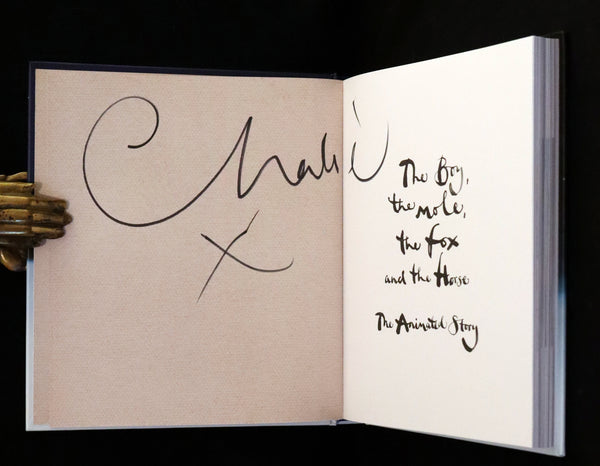 Charlie
X
The Boy,
the mole,
the fox
and the Horse
The Animated Story